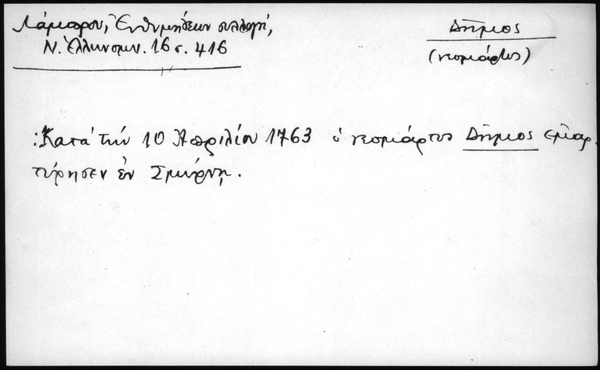 Λάμπρου, Ἐνθυμήσεων συλλογή,
Ν. Ἑλληνομν. 16 σ. 416
Δῆμος
(νεομάρτυς)
: Κατὰ τὴν 10 Ἀπριλίου 1763 ὁ νεομάρτυς Δῆμος ἐμαρ-
τύρησεν ἐν Σμύρνῃ.